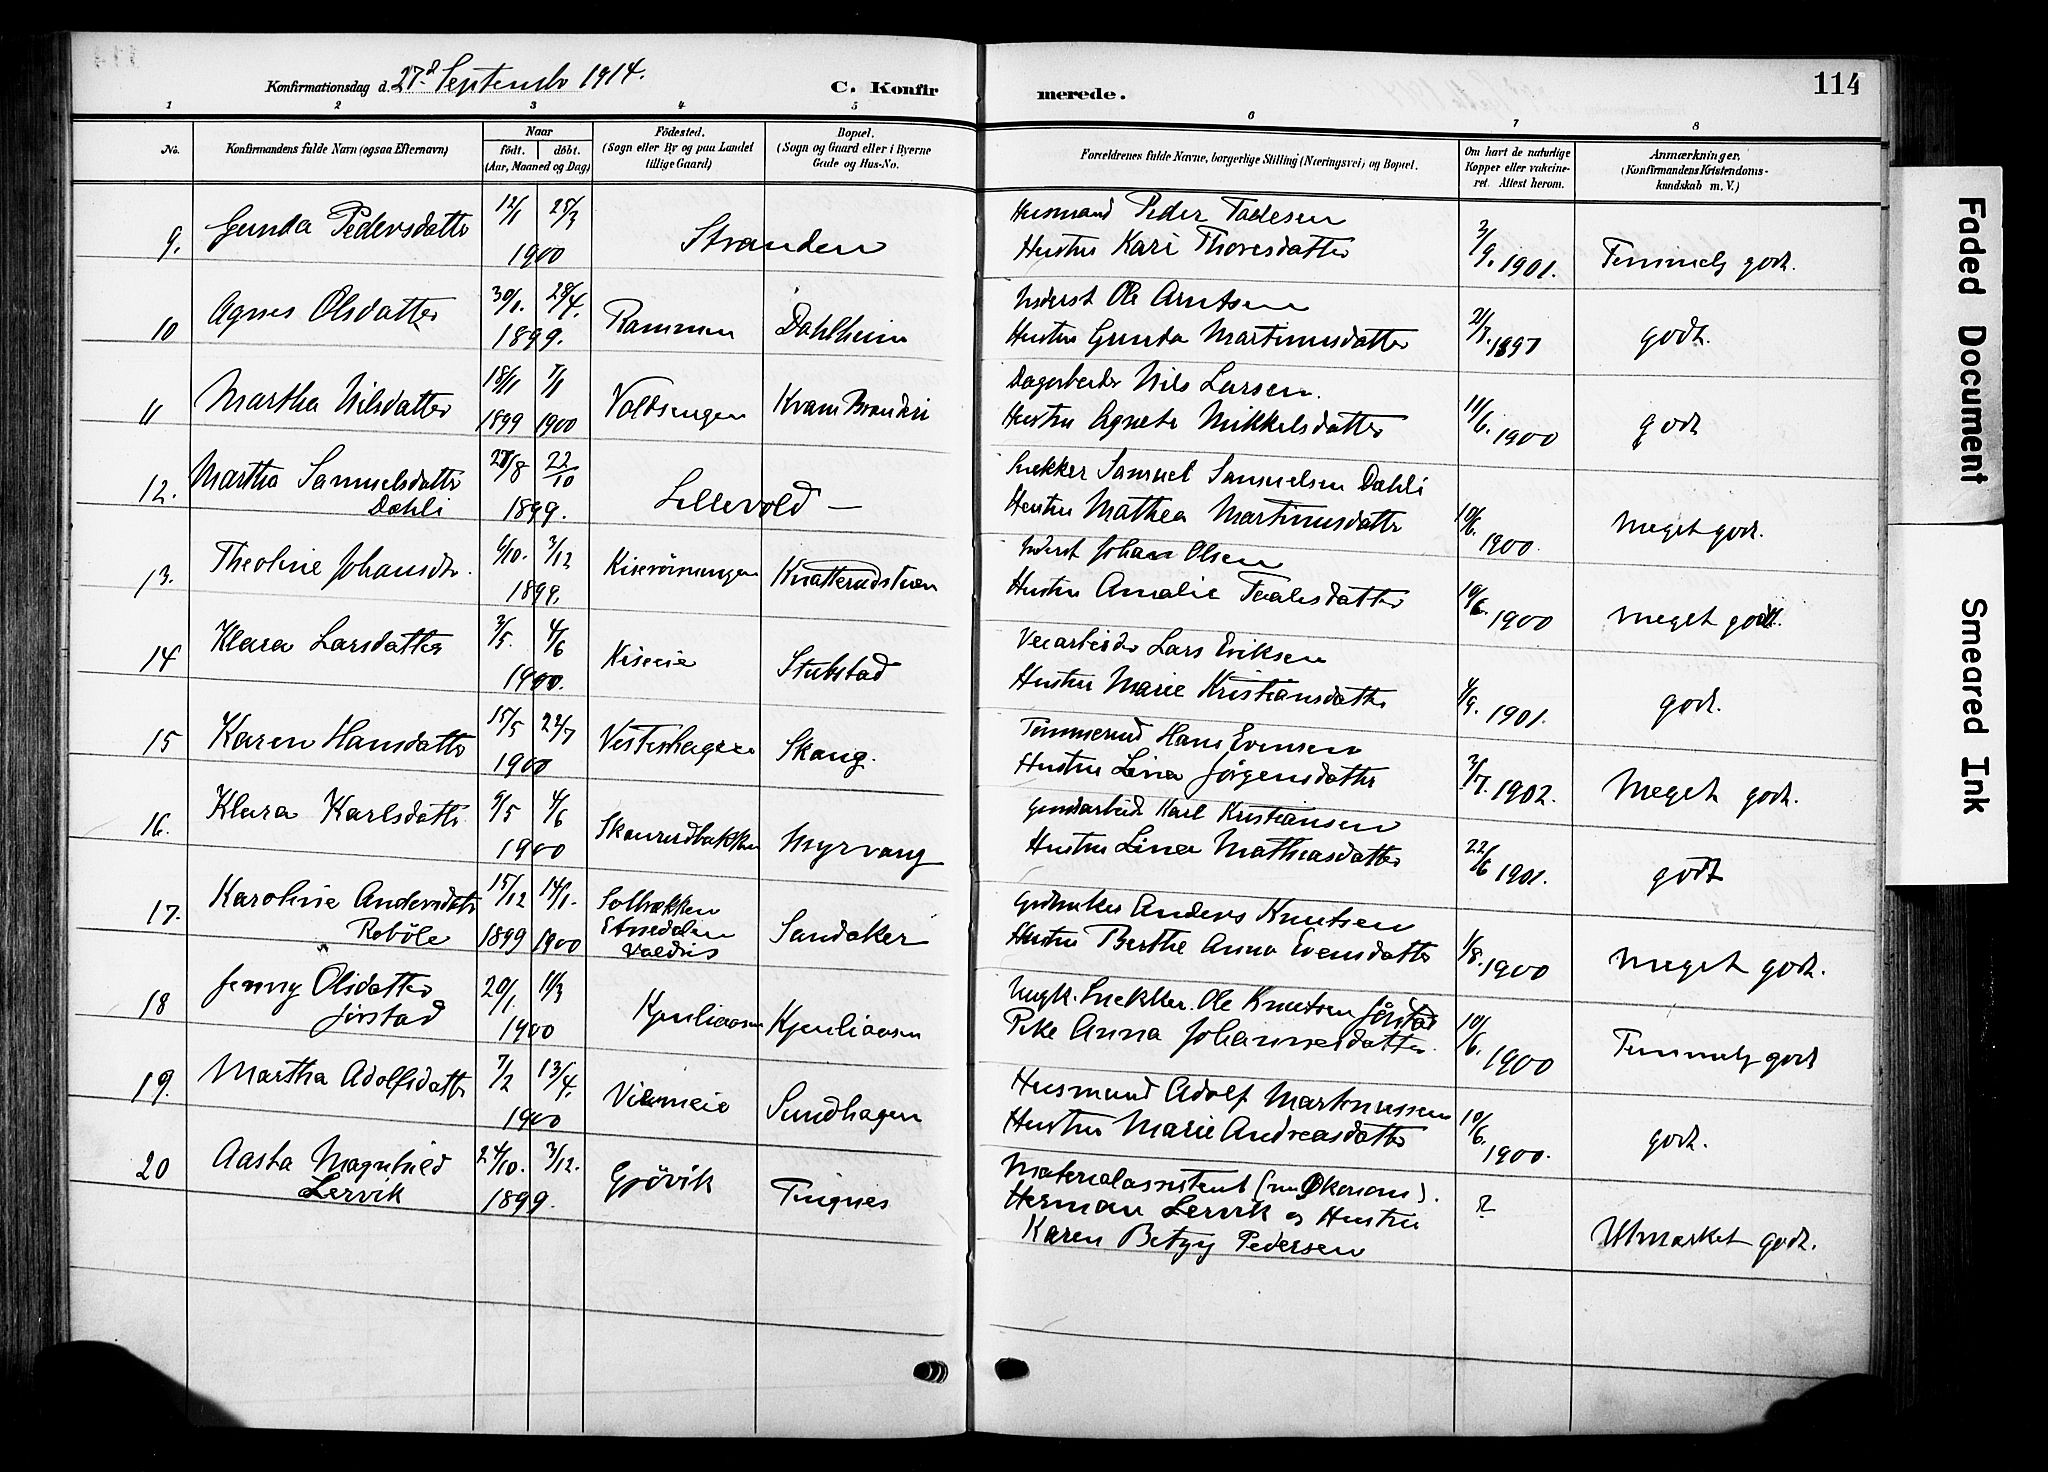 Konfirmationsdag d. 27d September 1914.
C. Konfirmerede.
114
1 2 3 4 5 6 7 8
No.
Konfirmandens fulde Navn (ogsaa Efternavn)
Naar
födt. döbt.
(Aar, Maaned og Dag)
Födested.
(Sogn eller By og paa Landet
tillige Gaard)
Bopæl.
(Sogn og Gaard eller i Byerne
Gade og Hus-No.
Forældrenes fulde Navne, borgerlige Stilling (Næringsvei) og Bopæl.
Om havt de naturlige
Kopper eller vakcine-
ret. Attest herom.
Anmærkninger.
(Konfirmandens Kristendoms-
kundskab m. V.)
9. Gunda Pedersdatter 12/1 25/3 1900 Stranden
Husmand Peder
Hustru Kari Thoresdatter 3/9. 1901. Temmelg godt.
10 Agnes Olsdatter 30/1. 28/4. 1899. Rammen Dahlheim
Inderst Ole Arntsen
Hustru Gunda Martinusdatter 1897 godt.
11 Martha Nilsdatter 18/11 1899 7/1 1900 Voldsengen Kvam
Dagarbeider Nils Larsen.
Hustru Agnete Mikkelsdatter 11/6. 1900 godt
12. Martha Samuelsdatter
Dahli 22/10 1899. Lillevold —
Snekker Samuel Samuelsen Dahli
Hustru Mathea Martinusdatter 10/6. 1900. Meget godt.
13. Theoline Johansdr. 3/12 1899. Knatterudstuen
Inderst Johan Olsen
Hustru Amalie 10/6. 1900 Meget godt.
14 Klara Larsdatter 4/6 1900. Kiseeie Stubstad
Veiarbeider Lars Eriksen
Hustru Marie Kristiansdatter 4/9. 1901. godt.
15 Karen Hansdatter 15/5 22/7 1900 Vesterhagen Skaug.
Tömmermd Hans Evensen
Hustru Lina Jörgensdatter 3/7. 1902. Meget godt.
16. Klara Karlsdatter 9/5 4/6 1900 Skaurudbakken Myrvang
Gaardarbeid Karl Kristiansen
Hustru Lina Mathiasdatter 22/6 1901. godt
17. Karoline Andersdatr
Roböle 15/12 1899 14/1. 1900 Solbakken
Etnedalen
Valdris Sandaker
Gaardbruker Anders Knutsen
Hustru Berthe Anna Evensdatter 1/8. 1900 Meget godt.
18 Jenny Olsdatter
Jörstad 20/1. 11/3 1900 Kjenliaasen Kjenliaasen
Ungk. Snekker. Ole Knutsen Jörstad
Pike Anna Johannesdatter 10/6. 1900 Temmelg godt
19. Martha Adolfsdatter 7/2 13/4. 1900 Sundhagen
Husmand Adolf Martinussen
Hustru Marie Andreasdatter 10/6. 1900. godt.
20 Aasta Magnhild
Lervik 24/10. 3/12. 1899. Gjövik Tingnes
Materialassistent (nu Økonom).
Herman Lervik og Hustru
Karen Betzy Pedersen ? Utmærket godt.
Faded Document
Smeared Ink